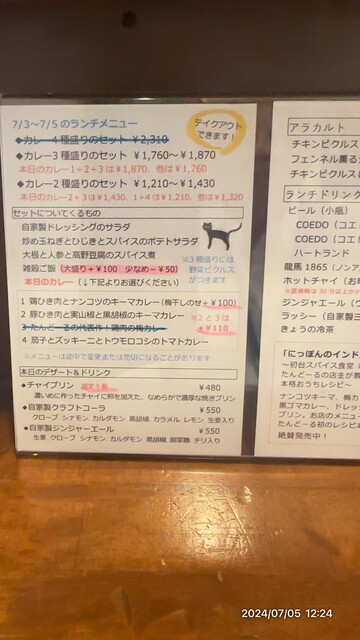 7/3～7/5 のランチメニュー
テイクアウト
できます！
◆カレー4種盛りのセット ¥2,310
◆カレー3種盛りのセット ¥1,760～¥1,870
本日のカレー1+2+3は¥1,870、他は¥1,760
◆カレー2種盛りのセット ¥1,210～¥1,430
本日のカレー2+3は¥1,430、1+4は¥1,210、他は¥1,320
セットについてくるもの
自家製ドレッシングのサラダ
炒め玉ねぎとひじきとスパイスのポテトサラダ
大根と人参と高野豆腐のスパイス煮
雑穀ご飯(大盛り+¥100 少なめ-¥50)
※3種盛りには
野菜ピクルス
がつきます
本日のカレー（↓下記よりお選びください）
1 鶏ひき肉とナンコツのキーマカレー(梅干しのせ+¥100)
2 豚ひき肉と実山椒と黒胡椒のキーマカレー
3 たんどーるの代表作！鶏肉の梅カレー
4 茄子とズッキーニとトウモロコシのトマトカレー
※2と3は
+¥110
※メニューは途中で変更または売切になることがあります
本日のデザート&ドリンク
◆チャイプリン ¥480
濃いめに作ったチャイに卵を加えた、なめらかで濃厚な焼きプリン
◆自家製クラフトコーラ ¥550
クローブ シナモン カルダモン 黒胡椒 カラメル レモン 生姜入り
◆自家製ジンジャーエール ¥550
生姜 クローブ シナモン カルダモン 黒胡椒 甜菜糖 チリ入り
アラカルト
チキンピクルス
フェンネル薫る
チキンピクルス
ランチドリンク
ビール（小瓶）
COEDO（コエ
COEDO（コエ
ハートランド
龍馬 1865（ノンア
ホットチャイ（お
ジンジャーエール（
ラッシー（自家製
きょうの冷茶
「にっぽんのインド
～初台スパイス食堂
たんどーるの店主が
本格おうちレシピ～
ナンコツキーマ、梅カ
黒ゴマカレー、ドレッ
プリン、お店のメニュー
たんどーる初のレシピ本
絶賛発売中！
2024/07/05 12:24